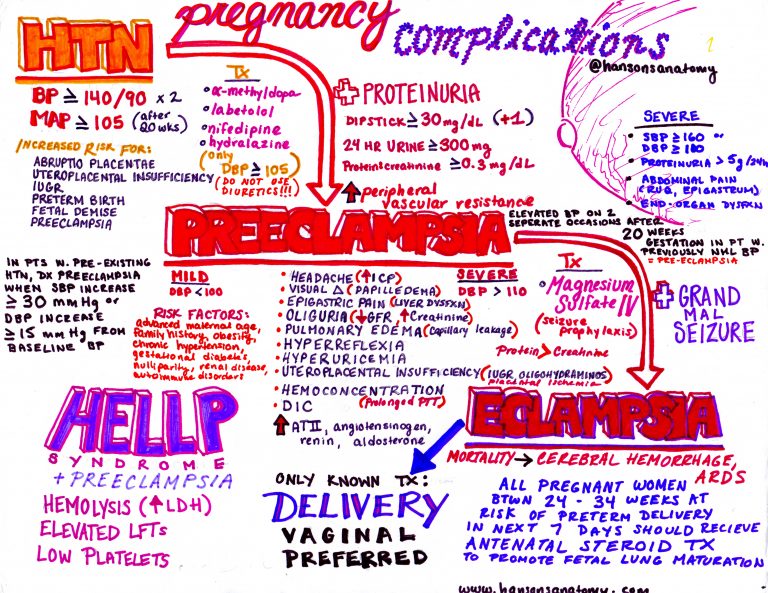 pregnancy
complications
@hansonsanatomy
HTN
BP ≥ 140/90 x 2
MAP ≥ 105 (after 20 wks)
INCREASED RISK FOR:
ABRUPTIO PLACENTAE
UTEROPLACENTAL INSUFFICIENCY
IUGR
PRETERM BIRTH
FETAL DEMISE
PREECLAMPSIA
Tx
• α-methyldopa
• labetolol
• nifedipine
• hydralazine
(only
DBP ≥ 105)
(DO NOT USE
DIURETICS!!!)
+ PROTEINURIA
DIPSTICK ≥ 30 mg/dL (+1)
24 HR URINE ≥ 300 mg
Protein:creatinine ≥ 0.3 mg/dL
↑ peripheral
vascular resistance
SEVERE
• SBP ≥ 160 or
DBP ≥ 110
• PROTEINURIA > 5g/24h
• ABDOMINAL PAIN
(RUQ, EPIGASTRUM)
• END-ORGAN DYSFXN
PREECLAMPSIA
ELEVATED BP ON 2
SEPERATE OCCASIONS AFTER
20 WEEKS
GESTATION IN PT W.
PREVIOUSLY NML BP
= PRE-ECLAMPSIA
IN PTS W. PRE-EXISTING
HTN, DX PREECLAMPSIA
WHEN SBP INCREASE
≥ 30 mmHg or
DBP INCREASE
≥ 15 mmHg FROM
BASELINE BP
MILD
DBP < 100
RISK FACTORS:
advanced maternal age,
family history, obesity,
chronic hypertension,
gestational diabetes,
nulliparity, renal disease,
autoimmune disorders
• HEADACHE (↑ICP)
• VISUAL Δ (PAPILLEDEMA)
• EPIGASTRIC PAIN (LIVER DYSFXN)
• OLIGURIA (↓GFR, ↑Creatinine)
• PULMONARY EDEMA (Capillary leakage)
• HYPERREFLEXIA
• HYPERURICEMIA
• UTEROPLACENTAL INSUFFICIENCY (IUGR, OLIGOHYDRAMINOS)
placental ischemia
• HEMOCONCENTRATION
• DIC (Prolonged PTT)
↑ ATII, angiotensinogen,
renin, aldosterone
SEVERE
DBP > 110
Tx
• Magnesium
Sulfate IV
(seizure
prophylaxis)
Protein > Creatinine
+ GRAND
MAL
SEIZURE
HELLP
SYNDROME
+ PREECLAMPSIA
HEMOLYSIS (↑LDH)
ELEVATED LFTs
LOW PLATELETS
ONLY KNOWN TX:
DELIVERY
VAGINAL
PREFERRED
ECLAMPSIA
MORTALITY → CEREBRAL HEMORRHAGE,
ARDS
ALL PREGNANT WOMEN
BTWN 24 - 34 WEEKS AT
RISK OF PRETERM DELIVERY
IN NEXT 7 DAYS SHOULD RECIEVE
ANTENATAL STEROID TX
TO PROMOTE FETAL LUNG MATURATION
www.hansonsanatomy.com